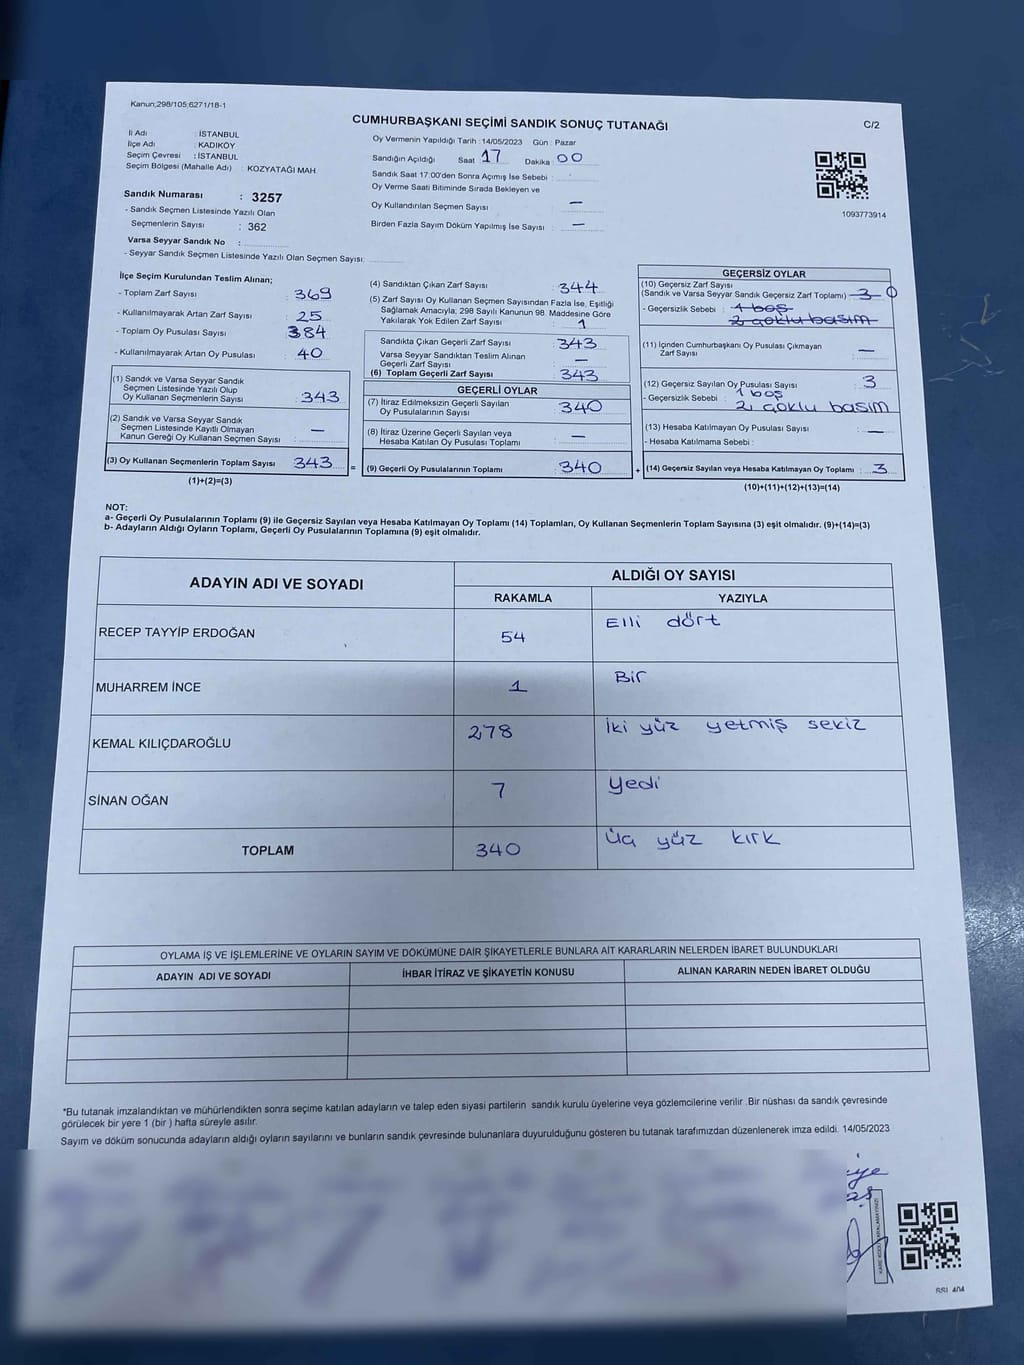 Kanun;298/105;6271/18-1
CUMHURBAŞKANI SEÇİMİ SANDIK SONUÇ TUTANAĞI
C/2
İl Adı : İSTANBUL
İlçe Adı : KADIKÖY
Seçim Çevresi : İSTANBUL
Seçim Bölgesi (Mahalle Adı) : KOZYATAĞI MAH.
Sandık Numarası : 3257
- Sandık Seçmen Listesinde Yazılı Olan
Seçmenlerin Sayısı : 362
Varsa Seyyar Sandık No :
- Seyyar Sandık Seçmen Listesinde Yazılı Olan Seçmen Sayısı:
Oy Vermenin Yapıldığı Tarih : 14/05/2023 Gün : Pazar
Sandığın Açıldığı Saat 17 Dakika 00
Sandık Saat 17:00'den Sonra Açımış İse Sebebi :
Oy Verme Saati Bitiminde Sırada Bekleyen ve
Oy Kullandırılan Seçmen Sayısı : —
Birden Fazla Sayım Döküm Yapılmış İse Sayısı : —
1093773914
İlçe Seçim Kurulundan Teslim Alınan;
- Toplam Zarf Sayısı : 369
- Kullanılmayarak Artan Zarf Sayısı : 25
- Toplam Oy Pusulası Sayısı : 384
- Kullanılmayarak Artan Oy Pusulası : 40
(1) Sandık ve Varsa Seyyar Sandık
Seçmen Listesinde Yazılı Olup
Oy Kullanan Seçmenlerin Sayısı : 343
(2) Sandık ve Varsa Seyyar Sandık
Seçmen Listesinde Kayıtlı Olmayan
Kanun Gereği Oy Kullanan Seçmen Sayısı : —
(3) Oy Kullanan Seçmenlerin Toplam Sayısı 343 =
(1)+(2)=(3)
(4) Sandıktan Çıkan Zarf Sayısı : 344
(5) Zarf Sayısı Oy Kullanan Seçmen Sayısından Fazla İse, Eşitliği
Sağlamak Amacıyla; 298 Sayılı Kanunun 98. Maddesine Göre
Yakılarak Yok Edilen Zarf Sayısı : 1
Sandıkta Çıkan Geçerli Zarf Sayısı : 343
Varsa Seyyar Sandıktan Teslim Alınan
Geçerli Zarf Sayısı : —
(6) Toplam Geçerli Zarf Sayısı : 343
GEÇERLİ OYLAR
(7) İtiraz Edilmeksizin Geçerli Sayılan
Oy Pusulalarının Sayısı : 340
(8) İtiraz Üzerine Geçerli Sayılan veya
Hesaba Katılan Oy Pusulası Toplamı : —
(9) Geçerli Oy Pusulalarının Toplamı : 340 +
GEÇERSİZ OYLAR
(10) Geçersiz Zarf Sayısı
(Sandık ve Varsa Seyyar Sandık Geçersiz Zarf Toplamı) : 3 0
- Geçersizlik Sebebi : 1 boş
2 çoklu basım
(11) İçinden Cumhurbaşkanı Oy Pusulası Çıkmayan
Zarf Sayısı : —
(12) Geçersiz Sayılan Oy Pusulası Sayısı : 3
- Geçersizlik Sebebi : 1 boş
2 çoklu basım
(13) Hesaba Katılmayan Oy Pusulası Sayısı : —
- Hesaba Katılmama Sebebi :
(14) Geçersiz Sayılan veya Hesaba Katılmayan Oy Toplamı : 3
(10)+(11)+(12)+(13)=(14)
NOT:
a- Geçerli Oy Pusulalarının Toplamı (9) ile Geçersiz Sayılan veya Hesaba Katılmayan Oy Toplamı (14) Toplamları, Oy Kullanan Seçmenlerin Toplam Sayısına (3) eşit olmalıdır. (9)+(14)=(3)
b- Adayların Aldığı Oyların Toplamı, Geçerli Oy Pusulalarının Toplamına (9) eşit olmalıdır.
ADAYIN ADI VE SOYADI
ALDIĞI OY SAYISI
RAKAMLA YAZIYLA
RECEP TAYYİP ERDOĞAN 54 Elli dört
MUHARREM İNCE 1 Bir
KEMAL KILIÇDAROĞLU 278 İki yüz yetmiş sekiz
SİNAN OĞAN 7 yedi
TOPLAM 340 üç yüz kırk
OYLAMA İŞ VE İŞLEMLERİNE VE OYLARIN SAYIM VE DÖKÜMÜNE DAİR ŞİKAYETLERLE BUNLARA AİT KARARLARIN NELERDEN İBARET BULUNDUKLARI
ADAYIN ADI VE SOYADI İHBAR İTİRAZ VE ŞİKAYETİN KONUSU ALINAN KARARIN NEDEN İBARET OLDUĞU
*Bu tutanak imzalandıktan ve mühürlendikten sonra seçime katılan adayların ve talep eden siyasi partilerin sandık kurulu üyelerine veya gözlemcilerine verilir .Bir nüshası da sandık çevresinde
görülecek bir yere 1 (bir ) hafta süreyle asılır.
Sayım ve döküm sonucunda adayların aldığı oyların sayılarını ve bunların sandık çevresinde bulunanlara duyurulduğunu gösteren bu tutanak tarafımızdan düzenlenerek imza edildi. 14/05/2023